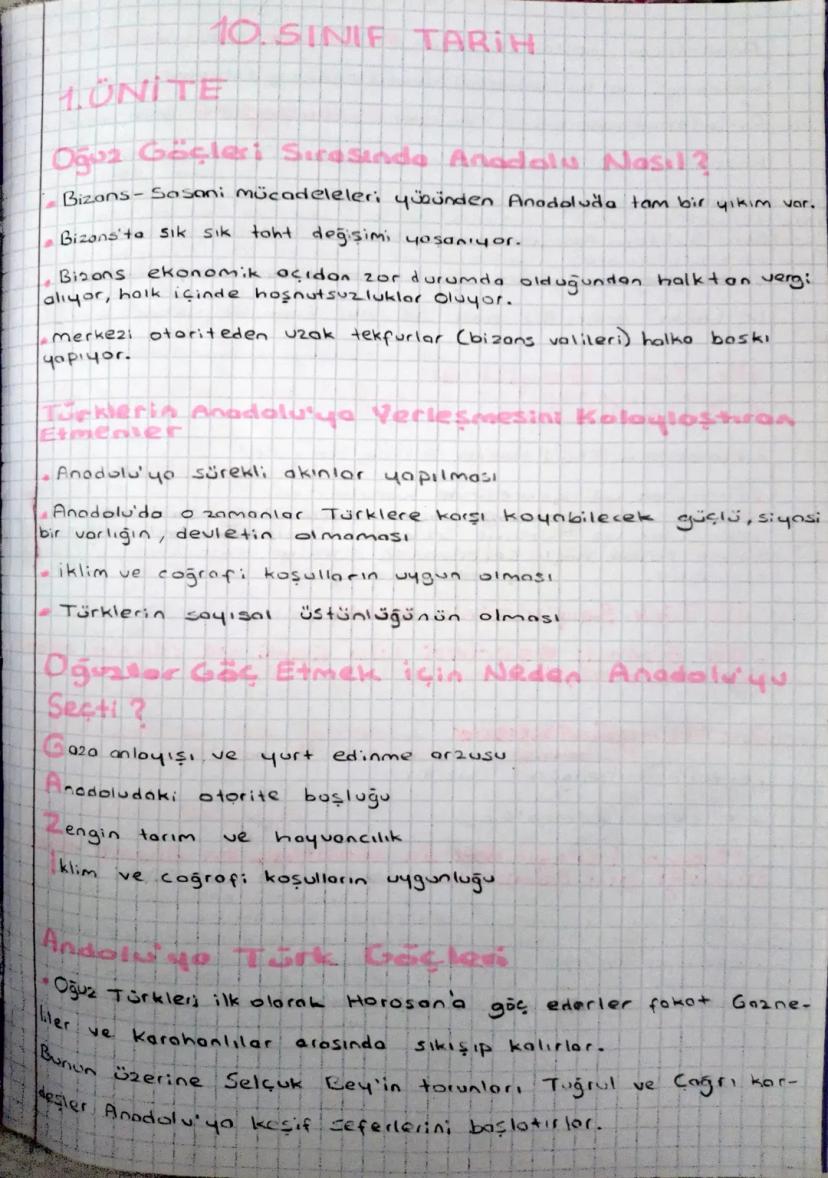 10. SINIF TARİH
1.ÜNİTE
Oğuz Göçleri Sırasında Anadolu Nasıl?
. Bizans-Sasani mücadeleleri yüzünden Anadolu'da tam bir yıkım var.
. Bizans'ta sık sık taht değişimi yaşanıyor.
. Bizans ekonomik açıdan zor durumda olduğundan halktan vergi
alıyor, halk içinde hoşnutsuzluklar oluyor.
. merkezi otoriteden uzak tekfurlar (bizans valileri) halka baskı
yapıyor.
Türklerin Anadolu'ya Yerleşmesini Kolaylaştıran
Etmenler
. Anadolu'ya sürekli akınlar yapılması
. Anadolu'da o zamanlar Türklere karşı koyabilecek güçlü, siyasi
bir varlığın, devletin olmaması
. iklim ve coğrafi koşulların uygun olması
. Türklerin sayısal üstünlüğünün olması
Oğuzlar Göç Etmek için Neden Anadolu'yu
Seçti?
Gaza anlayışı ve yurt edinme arzusu
Anadoludaki otorite boşluğu
Zengin tarım ve hayvancılık
İklim ve coğrafi koşulların uygunluğu
Andolu'ya Türk Göçleri
. Oğuz Türkleri ilk olarak Horosan'a göç ederler fakat Gazne-
liler ve Karahanlılar arasında sıkışıp kalırlar.
Bunun üzerine Selçuk Bey'in torunları Tuğrul ve Çağrı kar-
deşler Anadolu'ya keşif seferlerini başlatırlar.